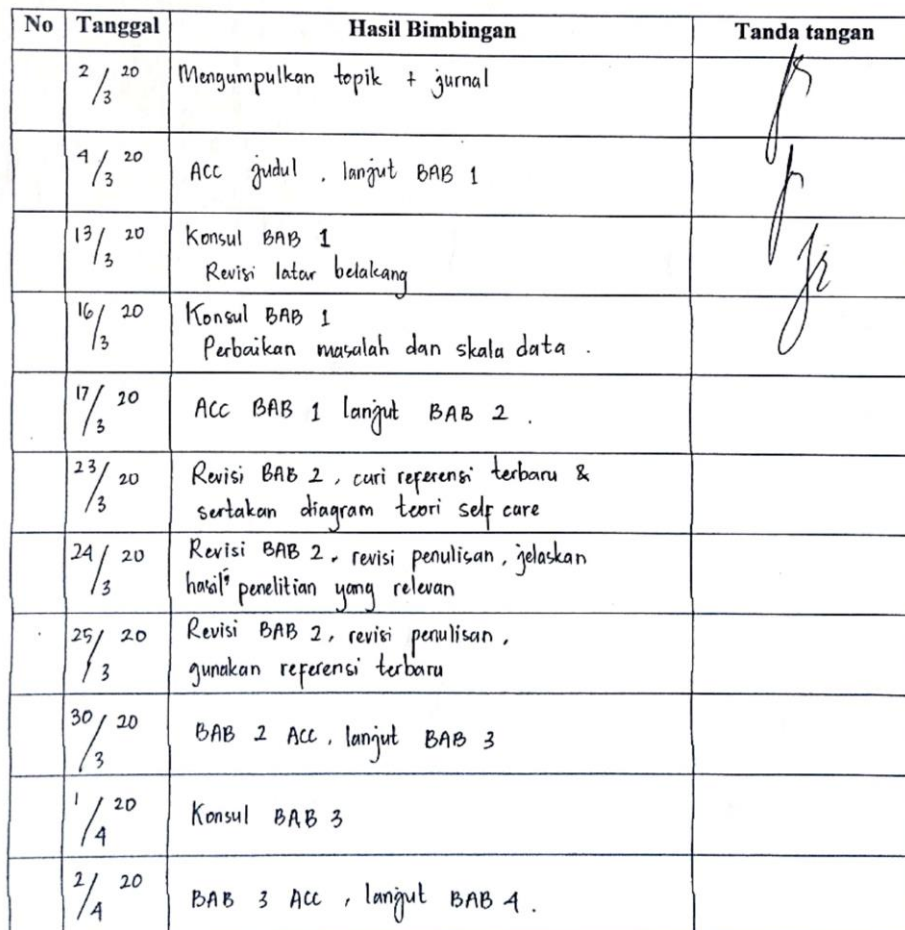 No Tanggal Hasil Bimbingan Tanda tangan
2/3 20 Mengumpulkan topik + jurnal
4/3 20 ACC judul, lanjut BAB 1
13/3 20 Konsul BAB 1
Revisi latar belakang
16/3 20 Konsul BAB 1
Perbaikan masalah dan skala data.
17/3 20 ACC BAB 1 lanjut BAB 2.
23/3 20 Revisi BAB 2, cari referensi terbaru &
sertakan diagram teori self care
24/3 20 Revisi BAB 2, revisi penulisan, jelaskan
hasil² penelitian yang relevan
25/3 20 Revisi BAB 2, revisi penulisan,
gunakan referensi terbaru
30/3 20 BAB 2 ACC, lanjut BAB 3
1/4 20 Konsul BAB 3
2/4 20 BAB 3 ACC, lanjut BAB 4.